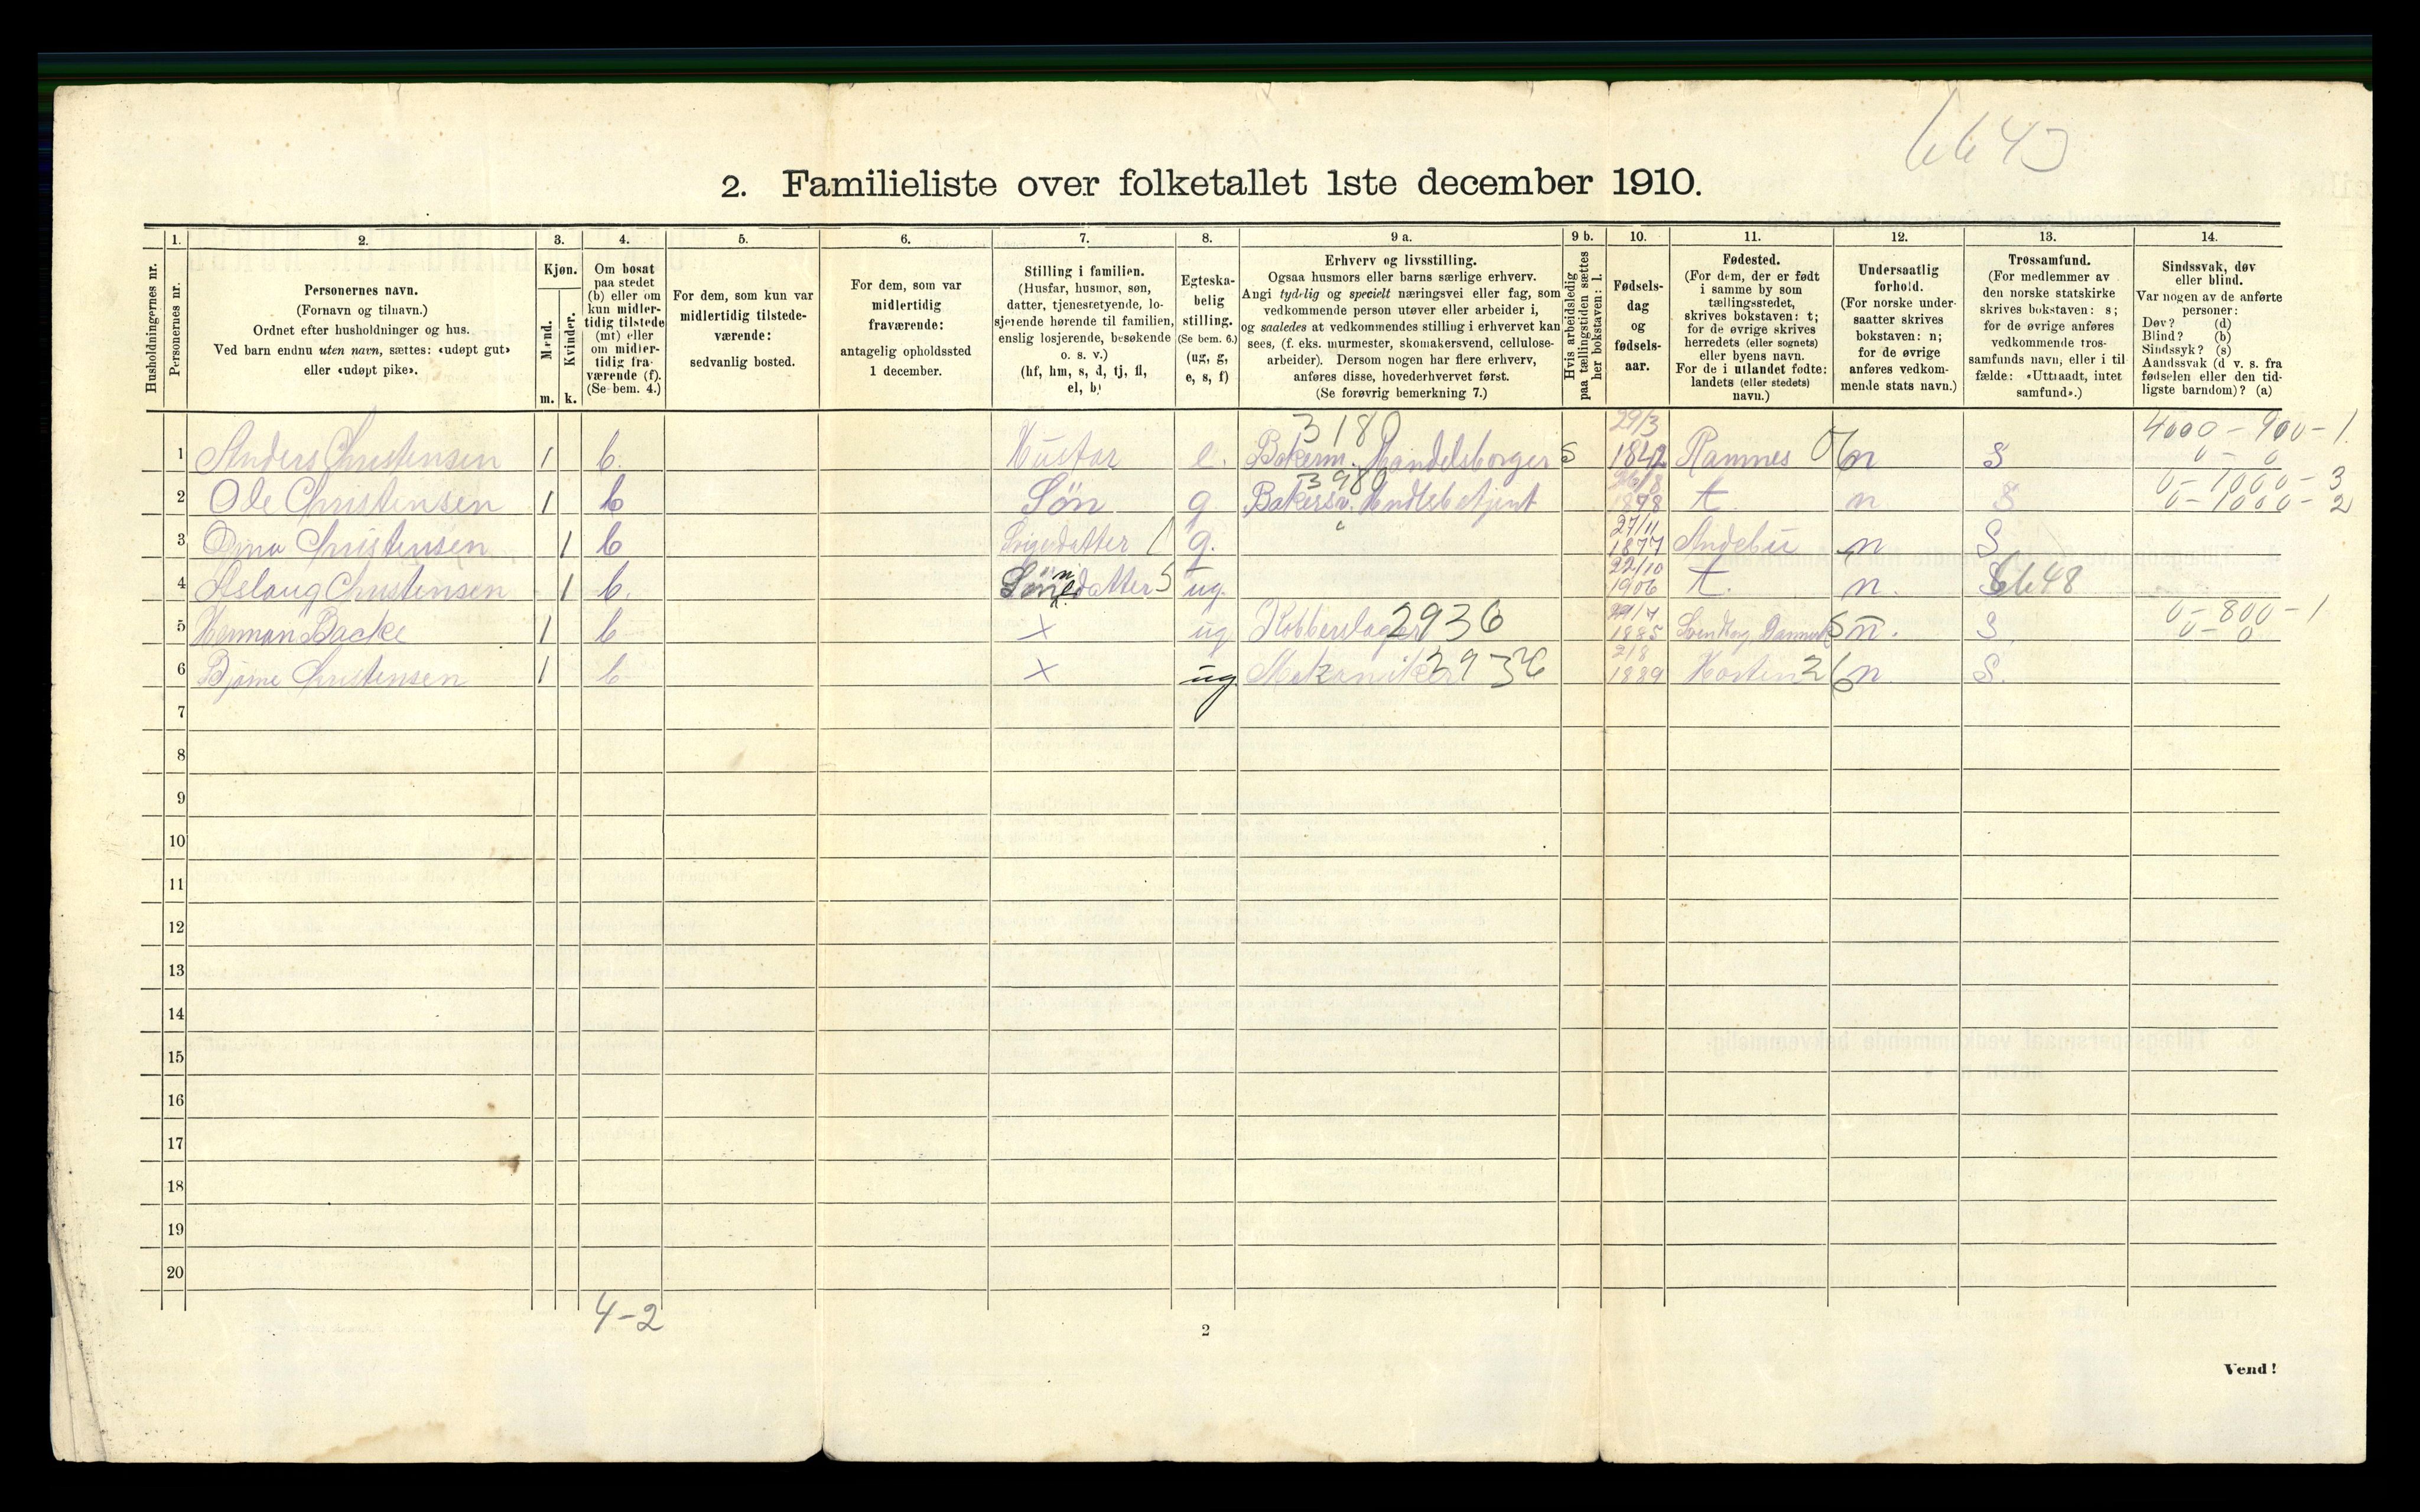 6643
2. Familieliste over folketallet 1ste december 1910.
Husholdningernes nr.
1. Personernes nr.
2. Personernes navn.
(Fornavn og tilnavn.)
Ordnet efter husholdninger og hus.
Ved barn endnu uten navn, sættes: «udøpt gut»
eller «udøpt pike».
3. Kjøn.
Mænd. m.
Kvinder. k.
4. Om bosat
paa stedet
(b) eller om
kun midler-
tidig tilstede
(mt) eller
om midler-
tidig fra-
værende (f).
(Se bem. 4.)
5. For dem, som kun var
midlertidig tilstede-
værende:
sedvanlig bosted.
6. For dem, som var
midlertidig
fraværende:
antagelig opholdssted
1 december.
7. Stilling i familien.
(Husfar, husmor, søn,
datter, tjenestetyende, lo-
sjerende hørende til familien,
enslig losjerende, besøkende
o. s. v.)
(hf, hm, s, d, tj, fl,
el, b)
8. Egteska-
belig
stilling.
(Se bem. 6.)
(ug, g,
e, s, f)
9 a. Erhverv og livsstilling.
Ogsaa husmors eller barns særlige erhverv.
Angi tydelig og specielt næringsvei eller fag, som
vedkommende person utøver eller arbeider i,
og saaledes at vedkommendes stilling i erhvervet kan
sees, (f. eks. murmester, skomakersvend, cellulose-
arbeider). Dersom nogen har flere erhverv,
anføres disse, hovederhvervet først.
(Se forøvrig bemerkning 7.)
9 b. Hvis arbeidsledig
paa tællingstiden sættes
her bokstaven: l.
10. Fødsels-
dag
og
fødsels-
aar.
11. Fødested.
(For dem, der er født
i samme by som
tællingsstedet,
skrives bokstaven: t;
for de øvrige skrives
herredets (eller sognets)
eller byens navn.
For de i utlandet fødte:
landets (eller stedets)
navn.)
12. Undersaatlig
forhold.
(For norske under-
saatter skrives
bokstaven: n;
for de øvrige
anføres vedkom-
mende stats navn.)
13. Trossamfund.
(For medlemmer av
den norske statskirke
skrives bokstaven: s;
for de øvrige anføres
vedkommende tros-
samfunds navn, eller i til
fælde: «Uttraadt, intet
samfund».)
14. Sindssvak, døv
eller blind.
Var nogen av de anførte
personer:
Døv? (d)
Blind? (b)
Sindssyk? (s)
Aandssvak (d. v. s. fra
fødselen eller den tid-
ligste barndom)? (a)
3180 29/3 4000 - 900 - 1.
1 Anders Christensen 1 b. Husfar e. Bakerm. Handelsborger S 1842 Ramnes 06 n S 0 - 0
3980 26/8 0 - 1000 - 3
2 Ole Christensen 1 b Søn g Bakersv. Hndlsbetjent 1878 t. n S 0 - 1000 - 2
27/11
3 Christensen 1 b Svigerdatter g. 1877 Andebu n S
22/10
4 Aslaug Christensen 1 b. Sønnedatter S ug. 1906 t. n. S 6648
0 - 800 - 1
5 Herman Backe 1 b X ug Kobberslager 2936 1885 Danmark n. S. 0 - 0
6 Bjarne Christensen 1 b X ug Mekaniker 2936 2/8 1889 Horten 26 n. S.
7
8
9
10
11
12
13
14
15
16
17
18
19
20
4-2
2
Vend!